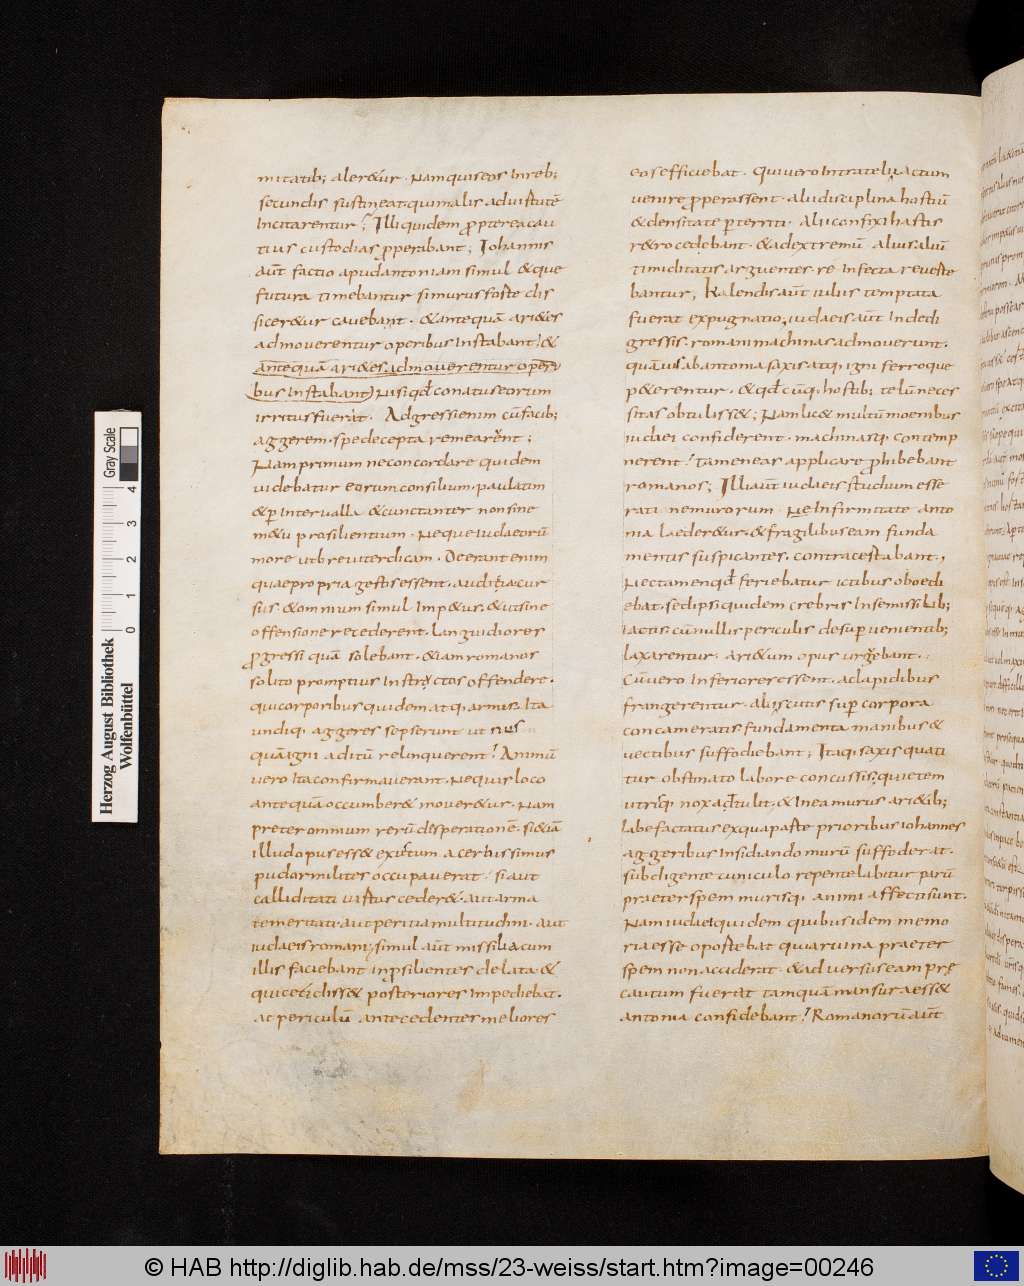 mitatib; aler&ur. Nam quis eos in reb;
secundis sustineat. qui malis adviståtē
incitarentur? Illi quidem propterea cau
tius custodias properabant; Iohannis
aūt factio apud antoniam simul &que
futura timebantur si murus foste dis
sicer&ur cauebant. &antequā ari&es
admouerentur operibus instabant; &
antequā ari&es admouerentur operi
bus instabant) Nisi qđ conatus eorum
irritus fuerat. Adgressi enim cū facib;
aggerem. spe decepta remearent;
Nam primum ne concordare quidem
uidebatur eorum consilium. paulatim
&p interualla &cunctanter non sine
m&u prosilientium. Neque iudaeorū
more ut breuiter dicam. Deerant enim
quae propria gentis essent. audacia cur
sus. &omnium simul imp&us. &ut sine
offensione recederent. languidiores
progressi quā solebant. &iam romanos
solito promptius instructos offendere.
qui corporibus quidem atq; armis. Ita
undiq; aggeres sepserunt ut nus
quā igni aditū relinquerent; Animū
uero ita confirmauerant. Ne quis loco
antequā occumber& mouer&ur. Nam
preter omnium rerū desperationē. si &iā
illud opus ess& exustum acerbissimus
pudor milites occupauerat. si aut
calliditati uirtus ceder&. aut arma
temeritati. aut peritia multitudini. aut
iudaeis romani; simul aūt missilia cum
illis faciebant in prosilientes delata. &
qui cecidiss& posteriores impediebat.
ac periculū antecedentes meliores
eos efficiebat. Qui uero intra teli iactum
uenire properassent. alii disciplina hostiū
&densitate p territi. Alii confixi hastis
r&rocedebant. &ad extremū. alius aliū
timiditatis arguentes re infecta reuerte
bantur; Kalendis aūt iulus temptata
fuerat expugnatio, iudaeis aūt in dedi
gressis. romani machinas admouerunt.
quāuis ab antonia saxis atq; igni ferroque
p&erentur. & qđ cūq; hostib; telū neces
sitas obtuliss&; Nam lic& multū moenibus
iudaei confiderent. machinasq; contemp
nerent; tamen eas applicare prohibebant
romanos; Illi aūt iudaeis studium esse
rati ne murorum. Ne infirmitate anto
nia laeder&ur. &fragilibus eam funda
mentis suspicantes. contra certabant.,
Nec tamen qđ feriebatur ictibus oboedi
ebat. sed ipsi quidem crebris in se missilib;
iactis. cū nullis periculis desup uenientib;
laxarentur. ari&um opus urgebant.
Cū uero inferiores essent. ac lapidibus
frangerentur. alii scutis sup corpora
concameratis fundamenta manibus &
uectibus suffodiebant; Itaq; saxis quati
tur obstinato labore concussis; quietem
utrisq; nox adtulit. & in ea murus ari&ib;
labefactatus ex qua parte prioribus iohannes
aggeribus insidiando murū suffoderat.
subeligente cuniculo repente labitur parū
praeter spem murisq; animi affecti sunt.
Nam iudaei quidem quibus idem memo
riae esse oportebat quia ruina praeter
spem non acciderat. &aduersus eam prę
cautum fuerat tamquā mansura ess&
antonia confidebant; Romanorū aūt
Herzog August Bibliothek
Wolfenbüttel
0 1 2 3 4
Gray Scale
© HAB http://diglib.hab.de/mss/23-weiss/start.htm?image=00246